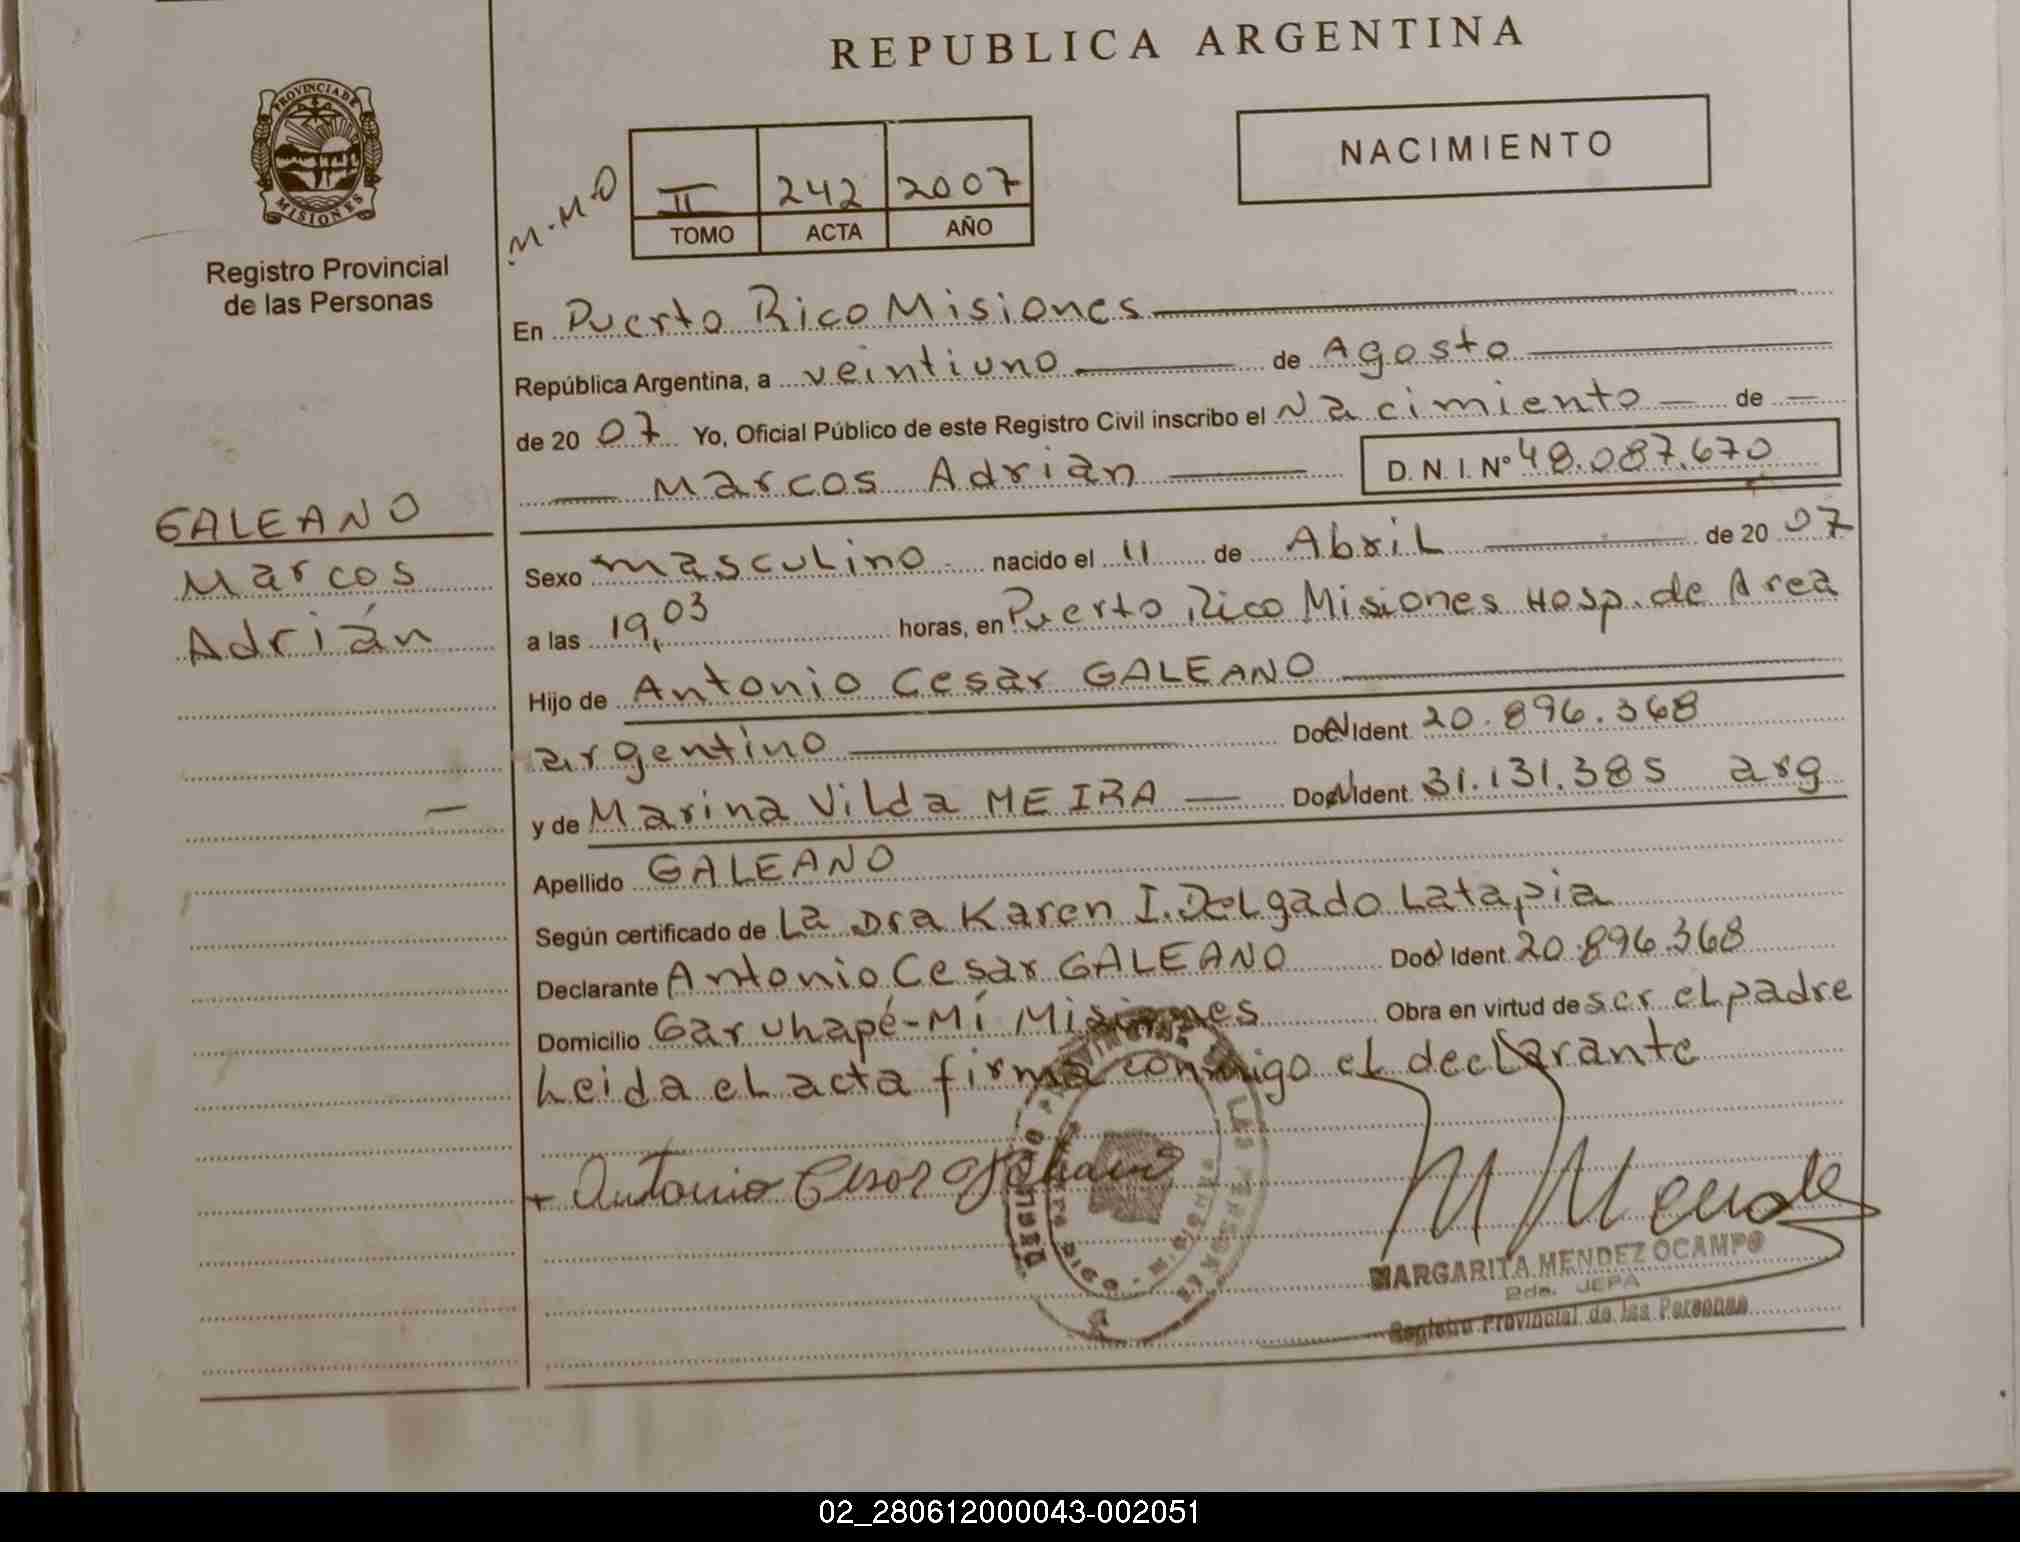 REPUBLICA ARGENTINA
PROVINCIA DE
MISIONES
Registro Provincial
de las Personas
NACIMIENTO
M.M.O
II 242 2007
TOMO ACTA AÑO
En Puerto Rico Misiones
República Argentina, a veintiuno de Agosto
de 20 07 Yo, Oficial Público de este Registro Civil inscribo el Nacimiento de
Marcos Adrián
D. N. I. N° 48.087.670
GALEANO
Marcos
Adrián
Sexo masculino nacido el 11 de Abril de 20 07
a las 19,03 horas, en Puerto Rico Misiones Hosp. de Area
Hijo de Antonio Cesar GALEANO
argentino Doc. Ident. 20.896.368
y de Marina Vilda MEIRA Doc. Ident. 31.131.385 arg
Apellido GALEANO
Según certificado de La Dra Karen I. Delgado Latapia
Declarante Antonio Cesar GALEANO Doc. Ident. 20.896.368
Domicilio Garuhapé-Mí Misiones Obra en virtud de ser el padre
Leida el acta firma conmigo el declarante
Antonio Cesar Galeano
M Mendez
MARGARITA MENDEZ OCAMPO
Registro Provincial de las Personas
02_280612000043-002051